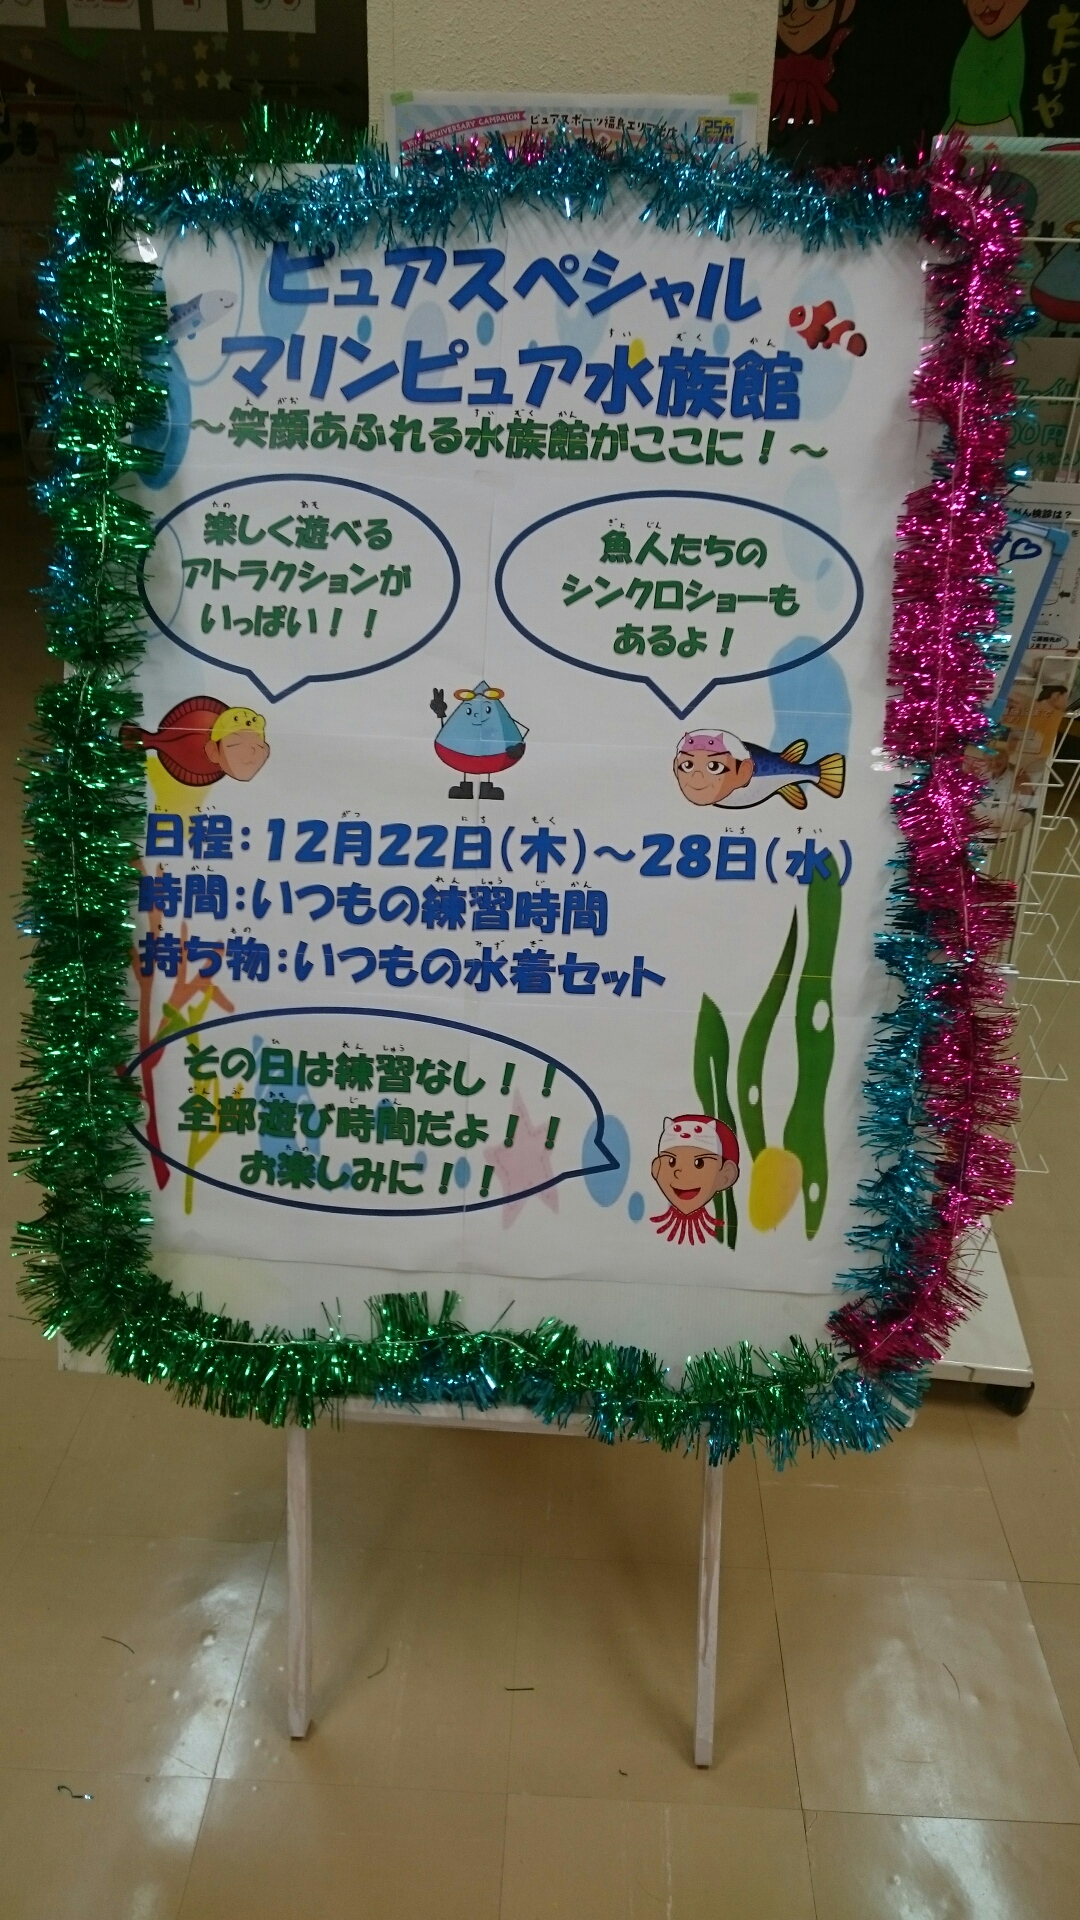 ANNIVERSARY CAMPAIGN
ピュアスポーツ福島エリア
だけや
ピュアスペシャル
マリンピュア水族館
～笑顔あふれる水族館がここに！～
楽しく遊べる
アトラクションが
いっぱい！！
魚人たちの
シンクロショーも
あるよ！
日程：12月22日(木)～28日(水)
時間：いつもの練習時間
持ち物：いつもの水着セット
その日は練習なし！！
全部遊び時間だよ！！
お楽しみに！！